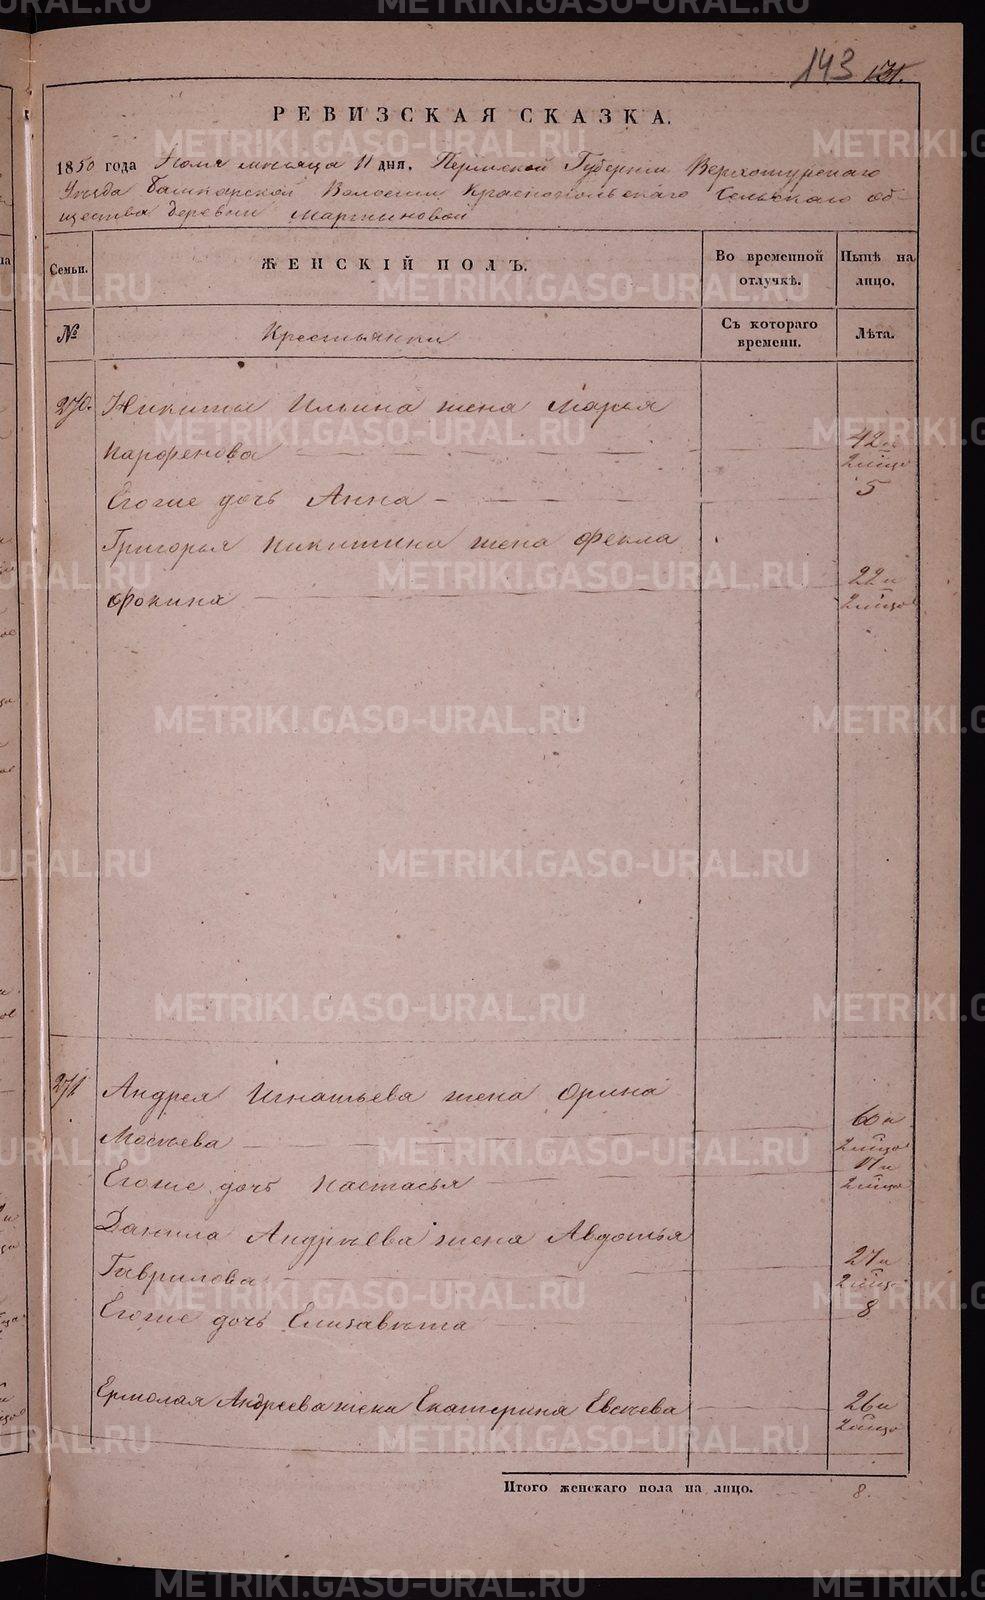 143 131.
РЕВИЗСКАЯ СКАЗКА.
1850 года Июля мѣсяца 11 дня. Пермской Губерніи Верхотурскаго
Уѣзда Башкарской Волости Краснопольскаго Сельскаго об-
щества деревни Мартыновой
Семьи. ЖЕНСКІЙ ПОЛЪ. Во временной отлучкѣ. Нынѣ на лицо.
№ Крестьянки Съ котораго времени. Лѣта.
270. Никиты Ильина жена Марья
Парфенова 42
Егоже дочь Анна 5
Григорья Никитина жена Фекла
Фокина 22
271 Андрея Игнатьева жена Орина
Мосѣева 60
Егоже дочь Настасья 17
Данила Андрѣева жена Авдотья
Гаврилова 27
Егоже дочь Елизавѣта 8
Ермолая Андреева жена Екатерина Евсѣева 26
Итого женскаго пола на лицо. 8.
METRIKI.GASO-URAL.RU